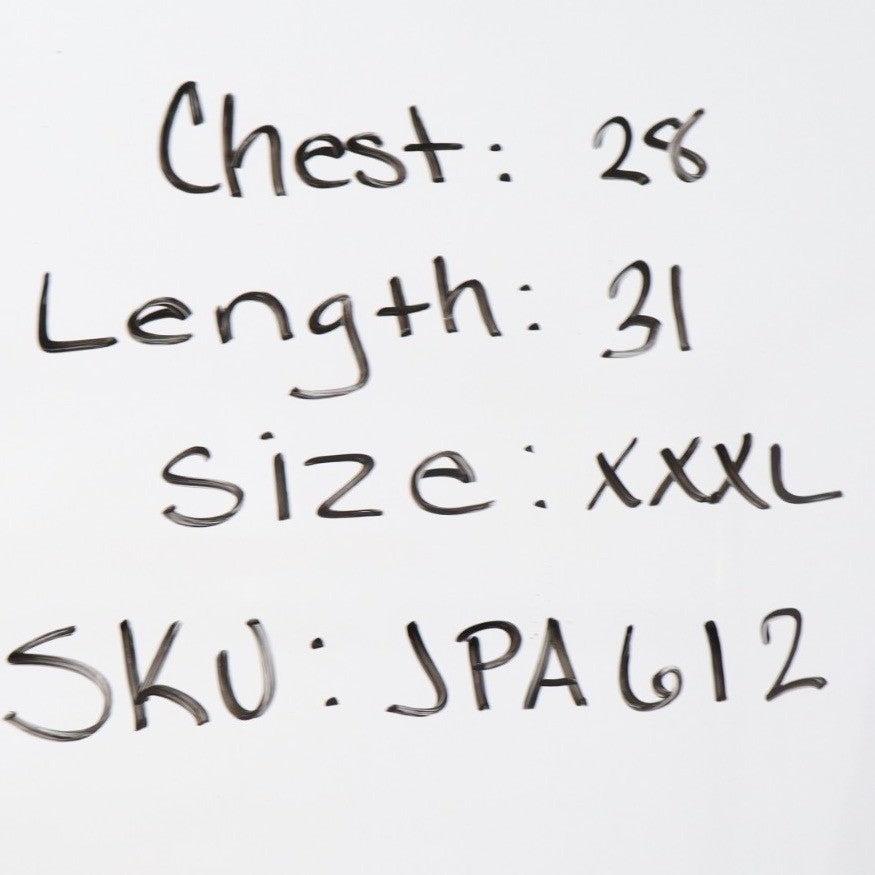 Chest: 28
Length: 31
Size: XXXL
SKU: JPA612